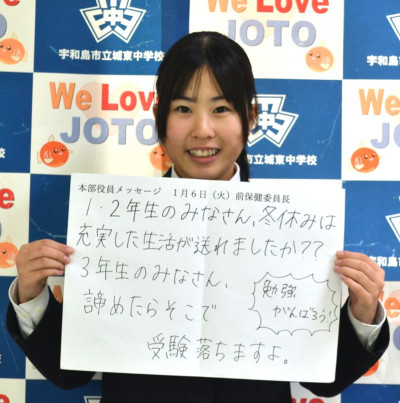 We Love
JOTO
宇和島市立城東中学校
We Love
JOTO
宇和島市立城東中学校
本部役員メッセージ　1月6日（火）前保健委員長
1・2年生のみなさん、冬休みは
充実した生活が送れましたか??
3年生のみなさん、
諦めたらそこで
受験落ちますよ。
勉強
がんばろう!